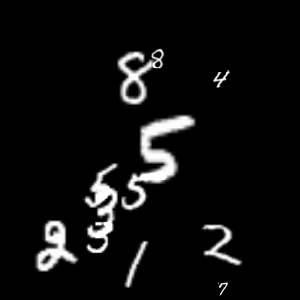 8 8
4
5
5 5
3
2 2
1
7